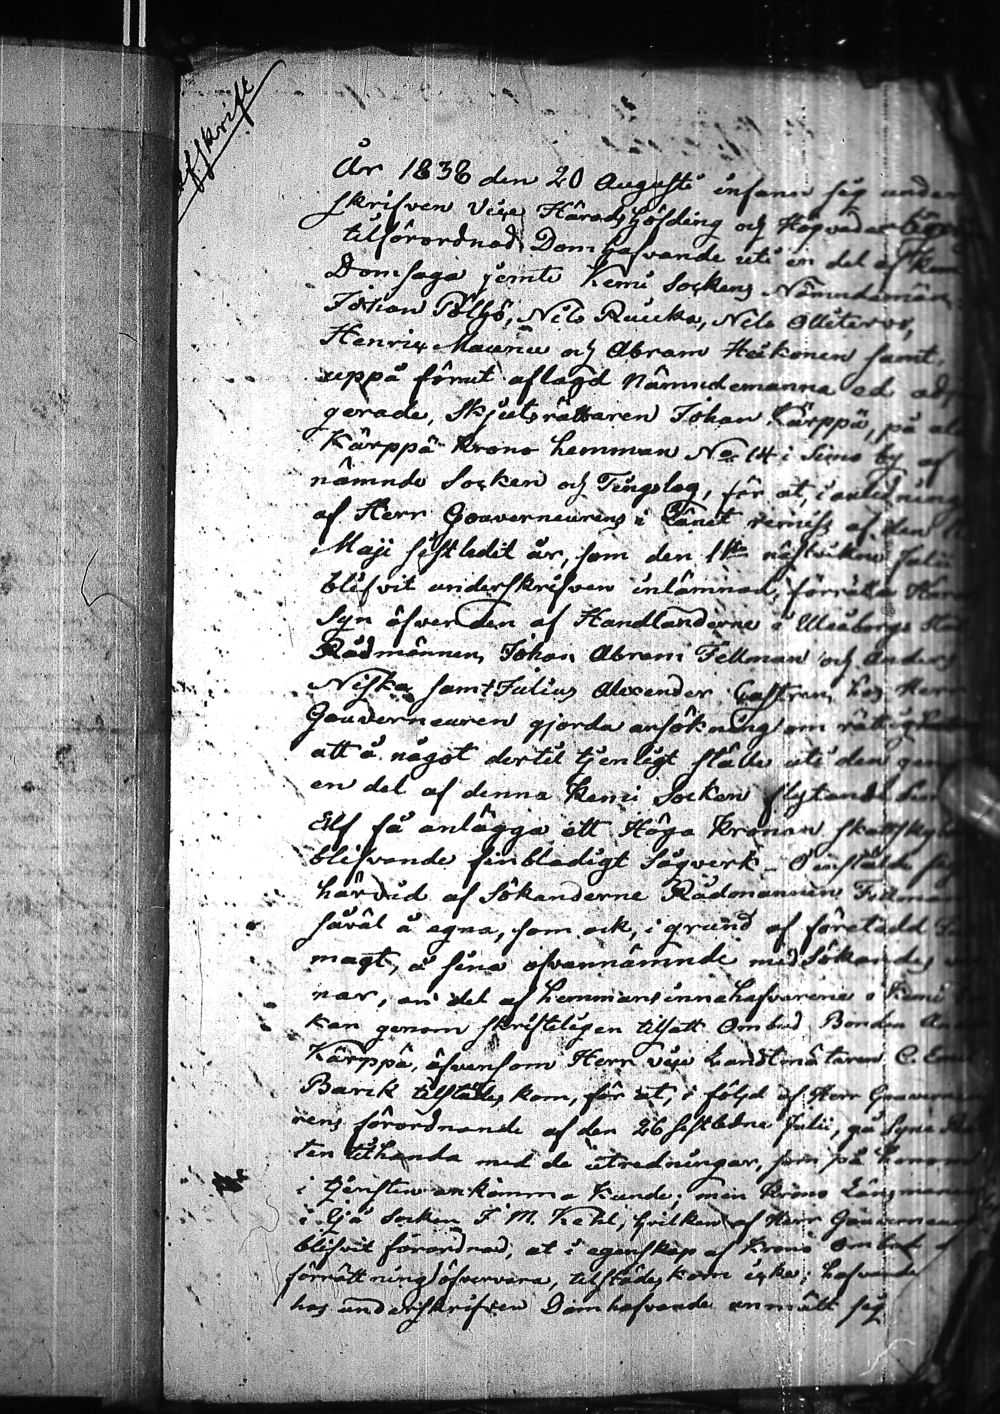 Afskrift
År 1838 den 20 Augusti infann sig under
skrifven Vice Häradshöfding och
tilförordnad Domhafvande uti en del af
Domsaga jemte Kemi Sockens Nämndemän
Johan Pöllö, Nils Ruicka, Nils
Henric Maunu och Abram Heikonen samt
uppå förut aflagd Nämndemanna ed
gerade, Skjutsrättaren Johan Kärppä, på
Kärppä Krono hemman No 14 i Simo by af
nämnde Socken och Tingslag, för at, i anledning
af Herr Gouverneurens i Länet remiss af den
Maji sistledit år, som den 1ste näst
blifvit underskrifven inlämnad, förrätta
Syn öfver den af Handlanderne i Uleåborgs
Rådmännen, Johan Abram Fellman och Anders
Niska samt Julius Alexander Castren, hos Herr
Gouverneuren gjorda ansökning om
att å något dertil tjenligt ställe uti den
en del af denna Kemi Socken flytande
Elf få anlägga ett Höga Kronan
blifvande finbladigt Sågverk. O
härvid af Sökanderne Rådmannen Fellman
såväl å egna, som ock, i grund af företedd
magt, å sina ofvannämnde medSökandes
nar, en del af hemmansinnehafvarene i Kemi
ken genom skrifteligen tilsatt Ombud Bonden
Kärppä, äfvensom Herr vice Landtmätaren C.
Barck tilstädes kom, för at, i följd af Herr
rens förordnande af den 26 sistledne Julii, gå Syne
ten tilhanda med de utredningar, som på honom
i tjensten ankomma kunde; men Krono Länsmannen
i Ijo Socken F. M. Kehl, hvilken af Herr
blifvit förordnad, at i egenskap af Krono Ombud
förrättning öfvervara, tilstädes kom icke; hafvande
hos underskrifven Domhafvande anmält sig